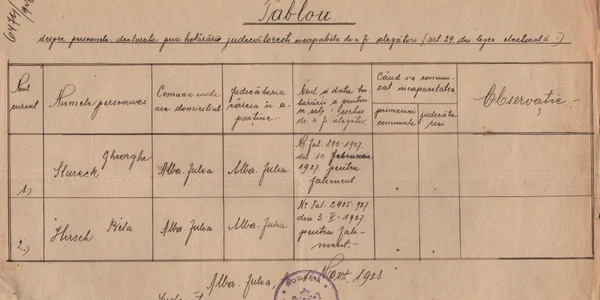 Tablou
despre persoanele declarate prin hotărâre judecătorească incapabile de a fi alegători (art. 29 din legea electorală.)
Nrul curent
Numele persoanei
Comuna unde are domiciliul
Judecătoria căreia îi aparține.
Nrul și data hotărârii și pentru
de a fi alegător.
Când s'a comunicat incapacitatea
primăriei comunale
judecătoriei
Observație
1.)
Stureck Gheorghe
Alba-Julia
Alba-Julia
din 10. Februarie
1927. pentru
faliment.
2.)
Hirsch Béla
Alba Julia
Alba-Julia
Nr. Fal. 2925-927
din 3. V-1927
pentru fali-
ment.-
Alba-Julia,
Nov. 1928
ROMANIA